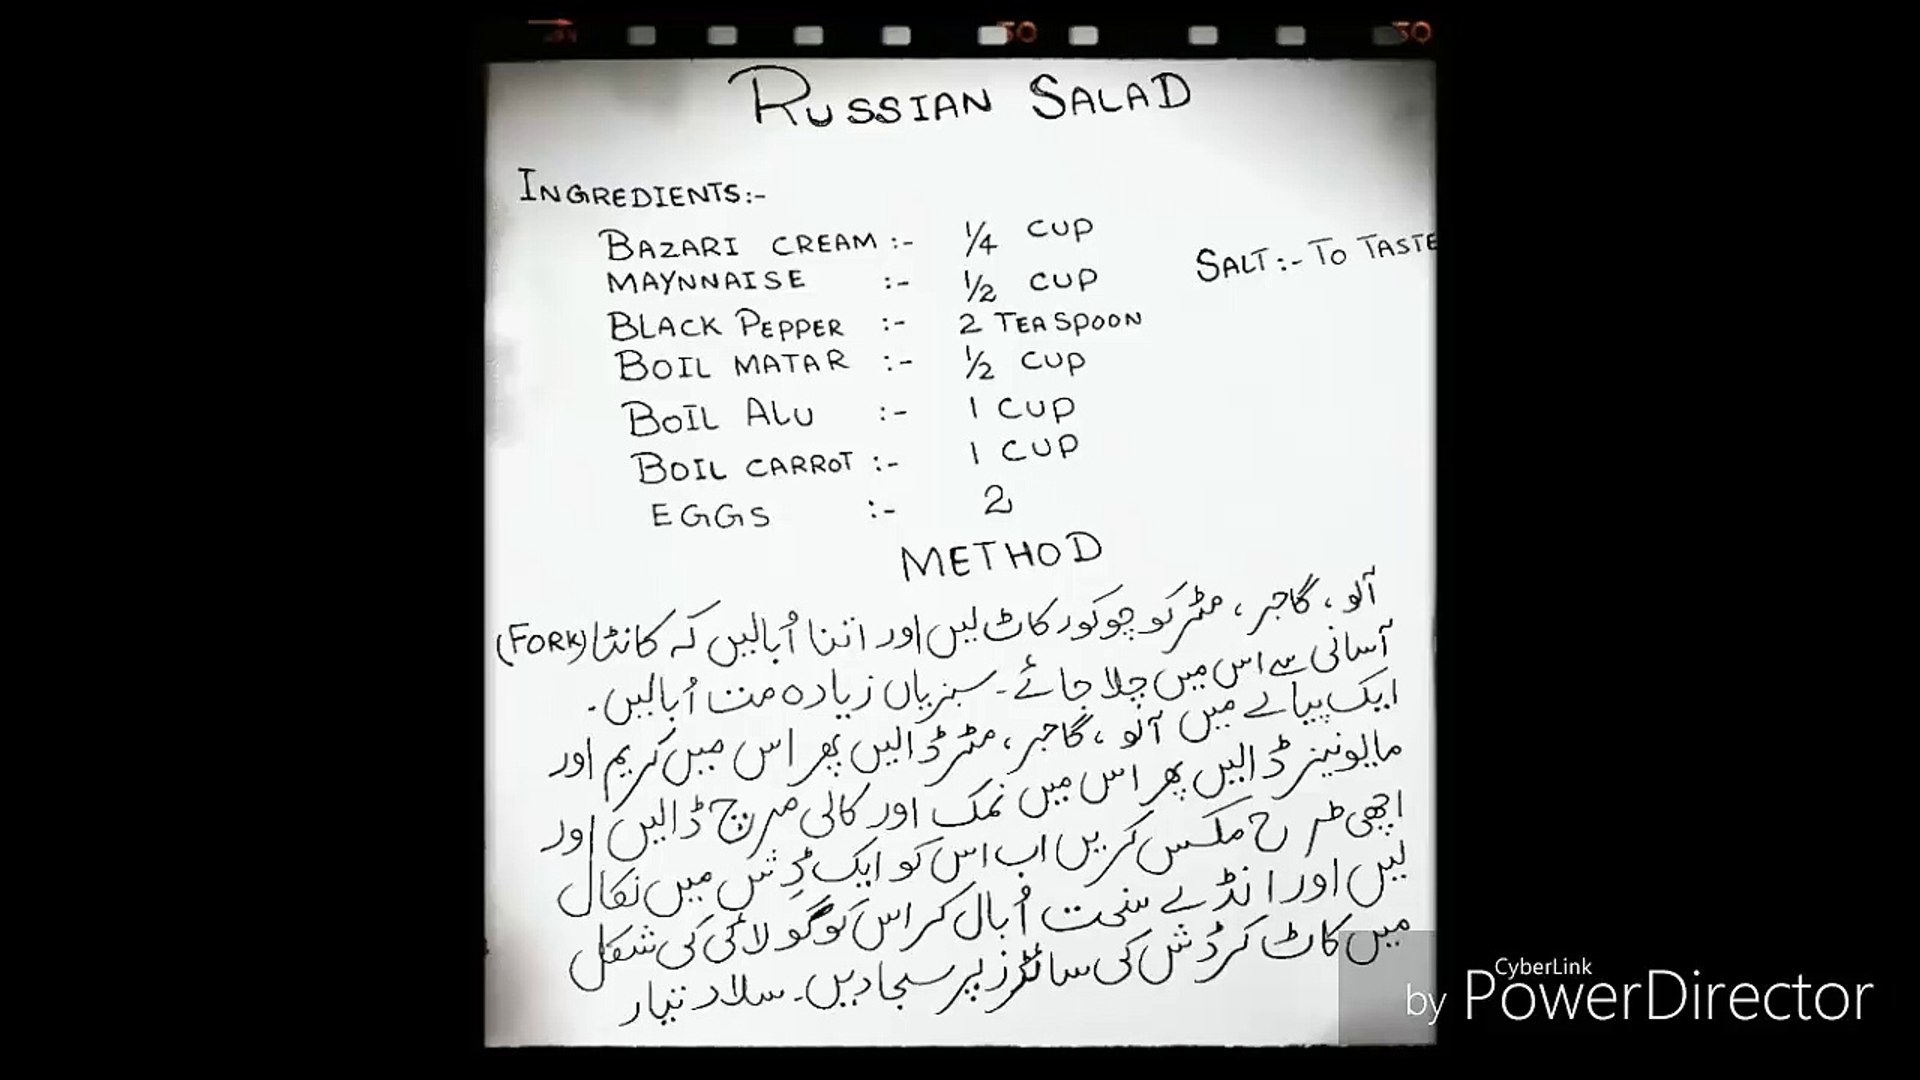 RUSSIAN SALAD
INGREDIENTS:-
BAZARI CREAM :- 1/4 CUP
SALT:- TO TASTE
MAYNNAISE :- 1/2 CUP
BLACK PEPPER :- 2 TEASPOON
BOIL MATAR :- 1/2 CUP
BOIL ALU :- 1 CUP
BOIL CARROT :- 1 CUP
EGGS :- 2
METHOD
آلو، گاجر، مٹر کو چوکور کاٹ لیں اور اتنا اُبالیں کہ کانٹا (FORK)
آسانی سے اس میں چلا جائے۔ سبزیاں زیادہ مت اُبالیں۔
ایک پیالے میں آلو، گاجر، مٹر ڈالیں پھر اس میں کریم اور
مایونیز ڈالیں پھر اس میں نمک اور کالی مرچ ڈالیں اور
اچھی طرح مکس کریں اب اس کو ایک ڈِش میں نکال
لیں اور انڈے سخت اُبال کر اس کو گولائی کی شکل
میں کاٹ کر ڈش کی سائڈز پر سجا دیں۔ سلاد تیار
CyberLink
by PowerDirector